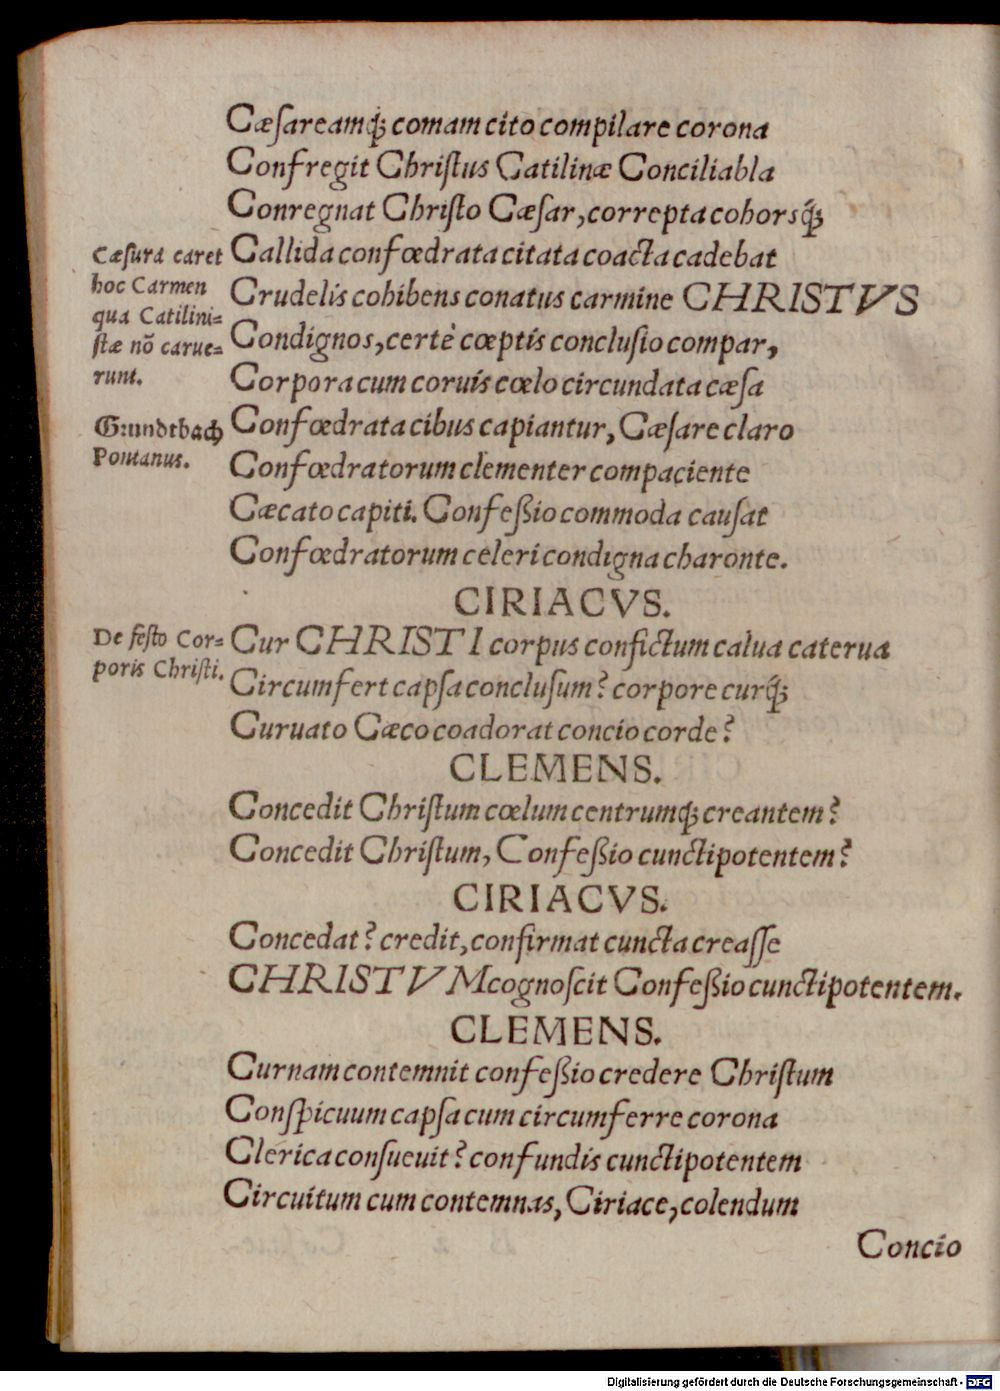 Cæſareamq́ꝫ comam cito compilare corona
Confregit Chriſtus Catilinæ Conciliabla
Conregnat Chriſto Cæſar, correpta cohorsq́ꝫ
Callida confœdrata citata coacta cadebat
Crudelis cohibens conatus carmine CHRISTVS
Condignos, certè cœptis concluſio compar,
Corpora cum coruis cœlo circundata cæſa
Confœdrata cibus capiantur, Cæſare claro
Confœdratorum clementer compaciente
Cæcato capiti. Confeßio commoda cauſat
Confœdratorum celeri condigna charonte.
Cæſura caret
hoc Carmen
qua Catilini⸗
ſtæ nõ carue⸗
runt.
Grundtbach
Pontanus.
CIRIACVS.
De feſto Cor⸗
poris Chriſti.
Cur CHRISTI corpus confictum calua caterua
Circumfert capſa concluſum? corpore curq́ꝫ
Curuato Cæco coadorat concio corde?
CLEMENS.
Concedit Chriſtum cœlum centrumq́ꝫ creantem?
Concedit Chriſtum, Confeßio cunctipotentem?
CIRIACVS.
Concedat? credit, confirmat cuncta creaſſe
CHRISTVM cognoſcit Confeßio cunctipotentem.
CLEMENS.
Curnam contemnit confeßio credere Chriſtum
Conſpicuum capſa cum circumferre corona
Clerica conſueuit? confundis cunctipotentem
Circuitum cum contemnas, Ciriace, colendum
Concio
Digitalisierung gefördert durch die Deutsche Forschungsgemeinschaft - DFG